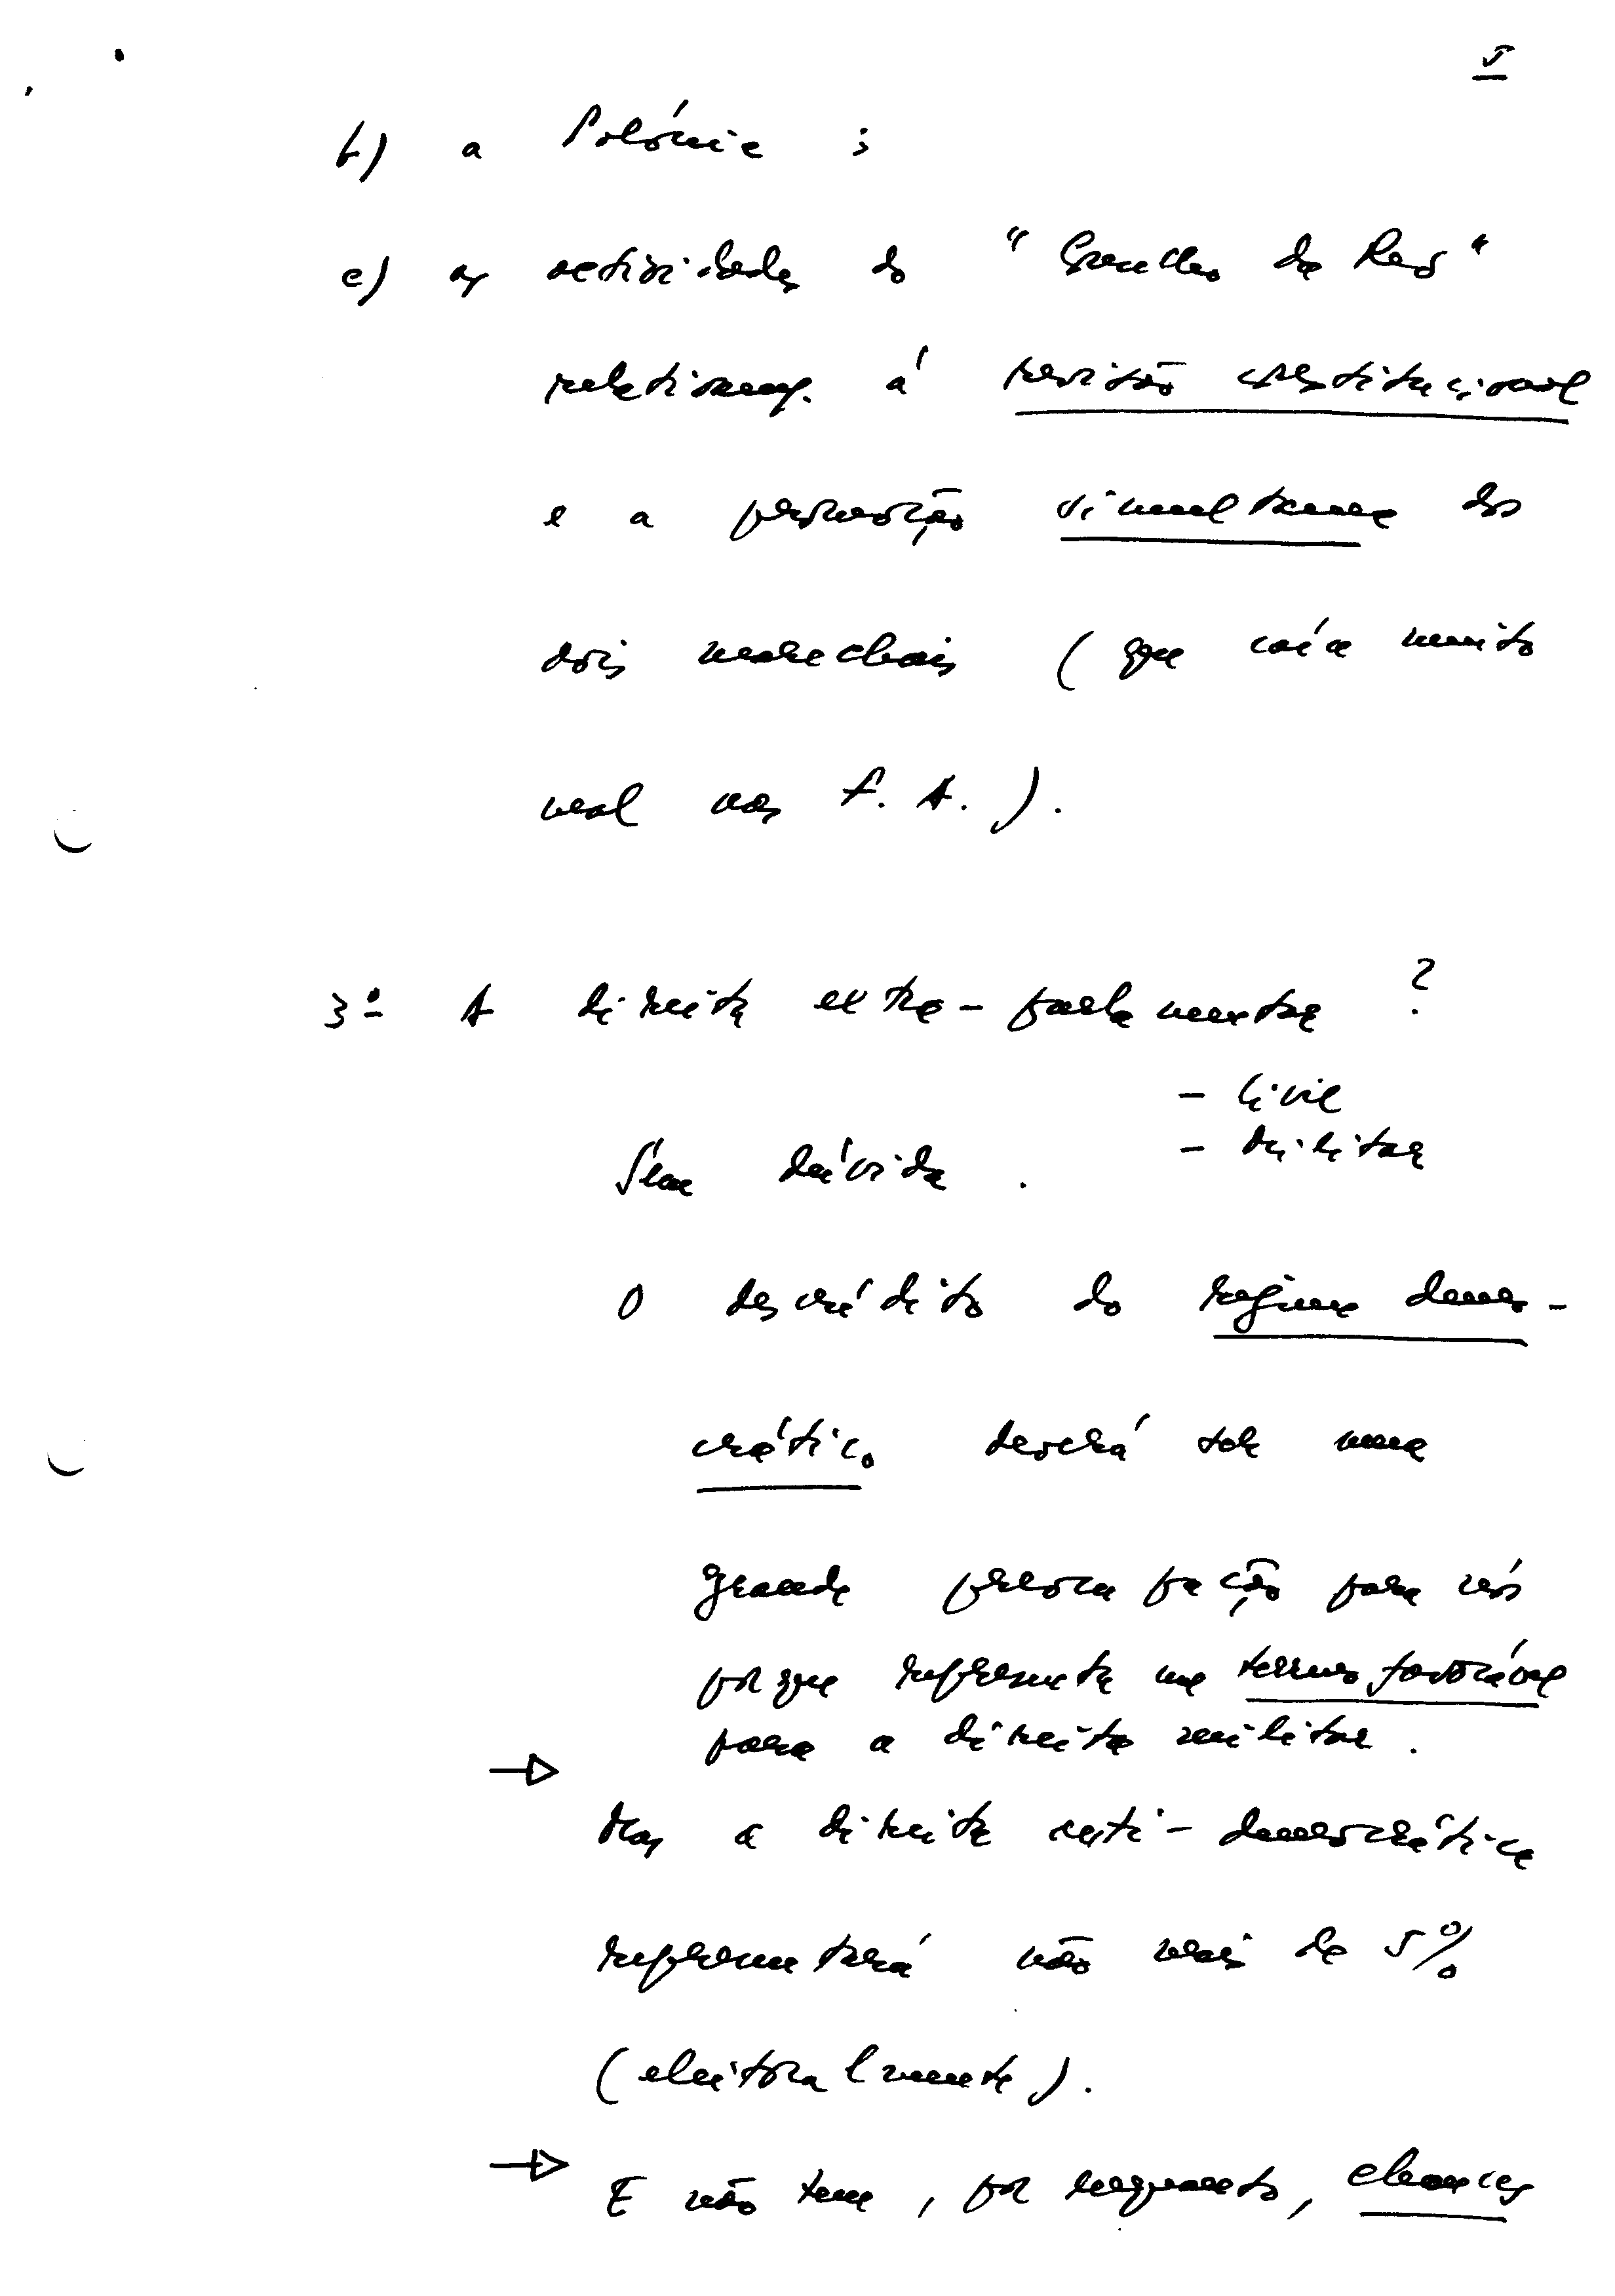 5
b) a Polónia ;
c) as actividades do " Conselho da Rev "
relativamt. à revisão constitucional
e a promoção simultanea dos
dois marechais ( que caía muito
mal nas F. A. ) .
3º A direita extra - parlamentar ?
- Civil
- Militar
Sem dúvida .
O descrédito do regime demo -
crático deverá ser uma
grande preocupação para nós
porque representa um terreno favorável
para a direita militar .
→ Mas a direita anti - democrática
representará não mais de 5%
( eleitoralmente ) .
→ E não tem , por enquanto , chances